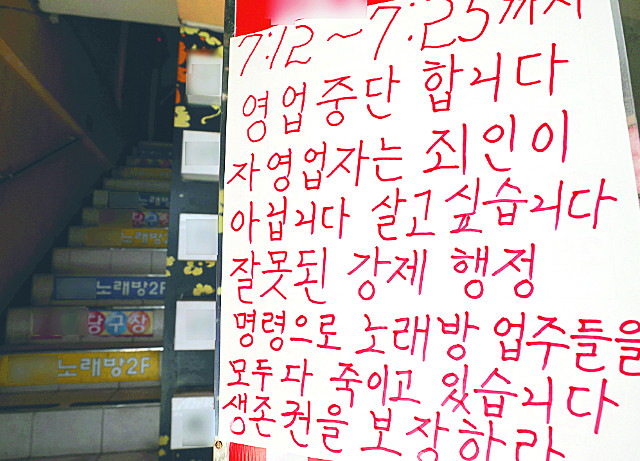 7:12~7:25까지
영업중단 합니다
자영업자는 죄인이
아닙니다 살고싶습니다
잘못된 강제 행정
명령으로 노래방 업주들을
모두 다 죽이고 있습니다
생존권을 보장하라
노래방
당구장
노래방
노래방2F
당구장
노래방2F